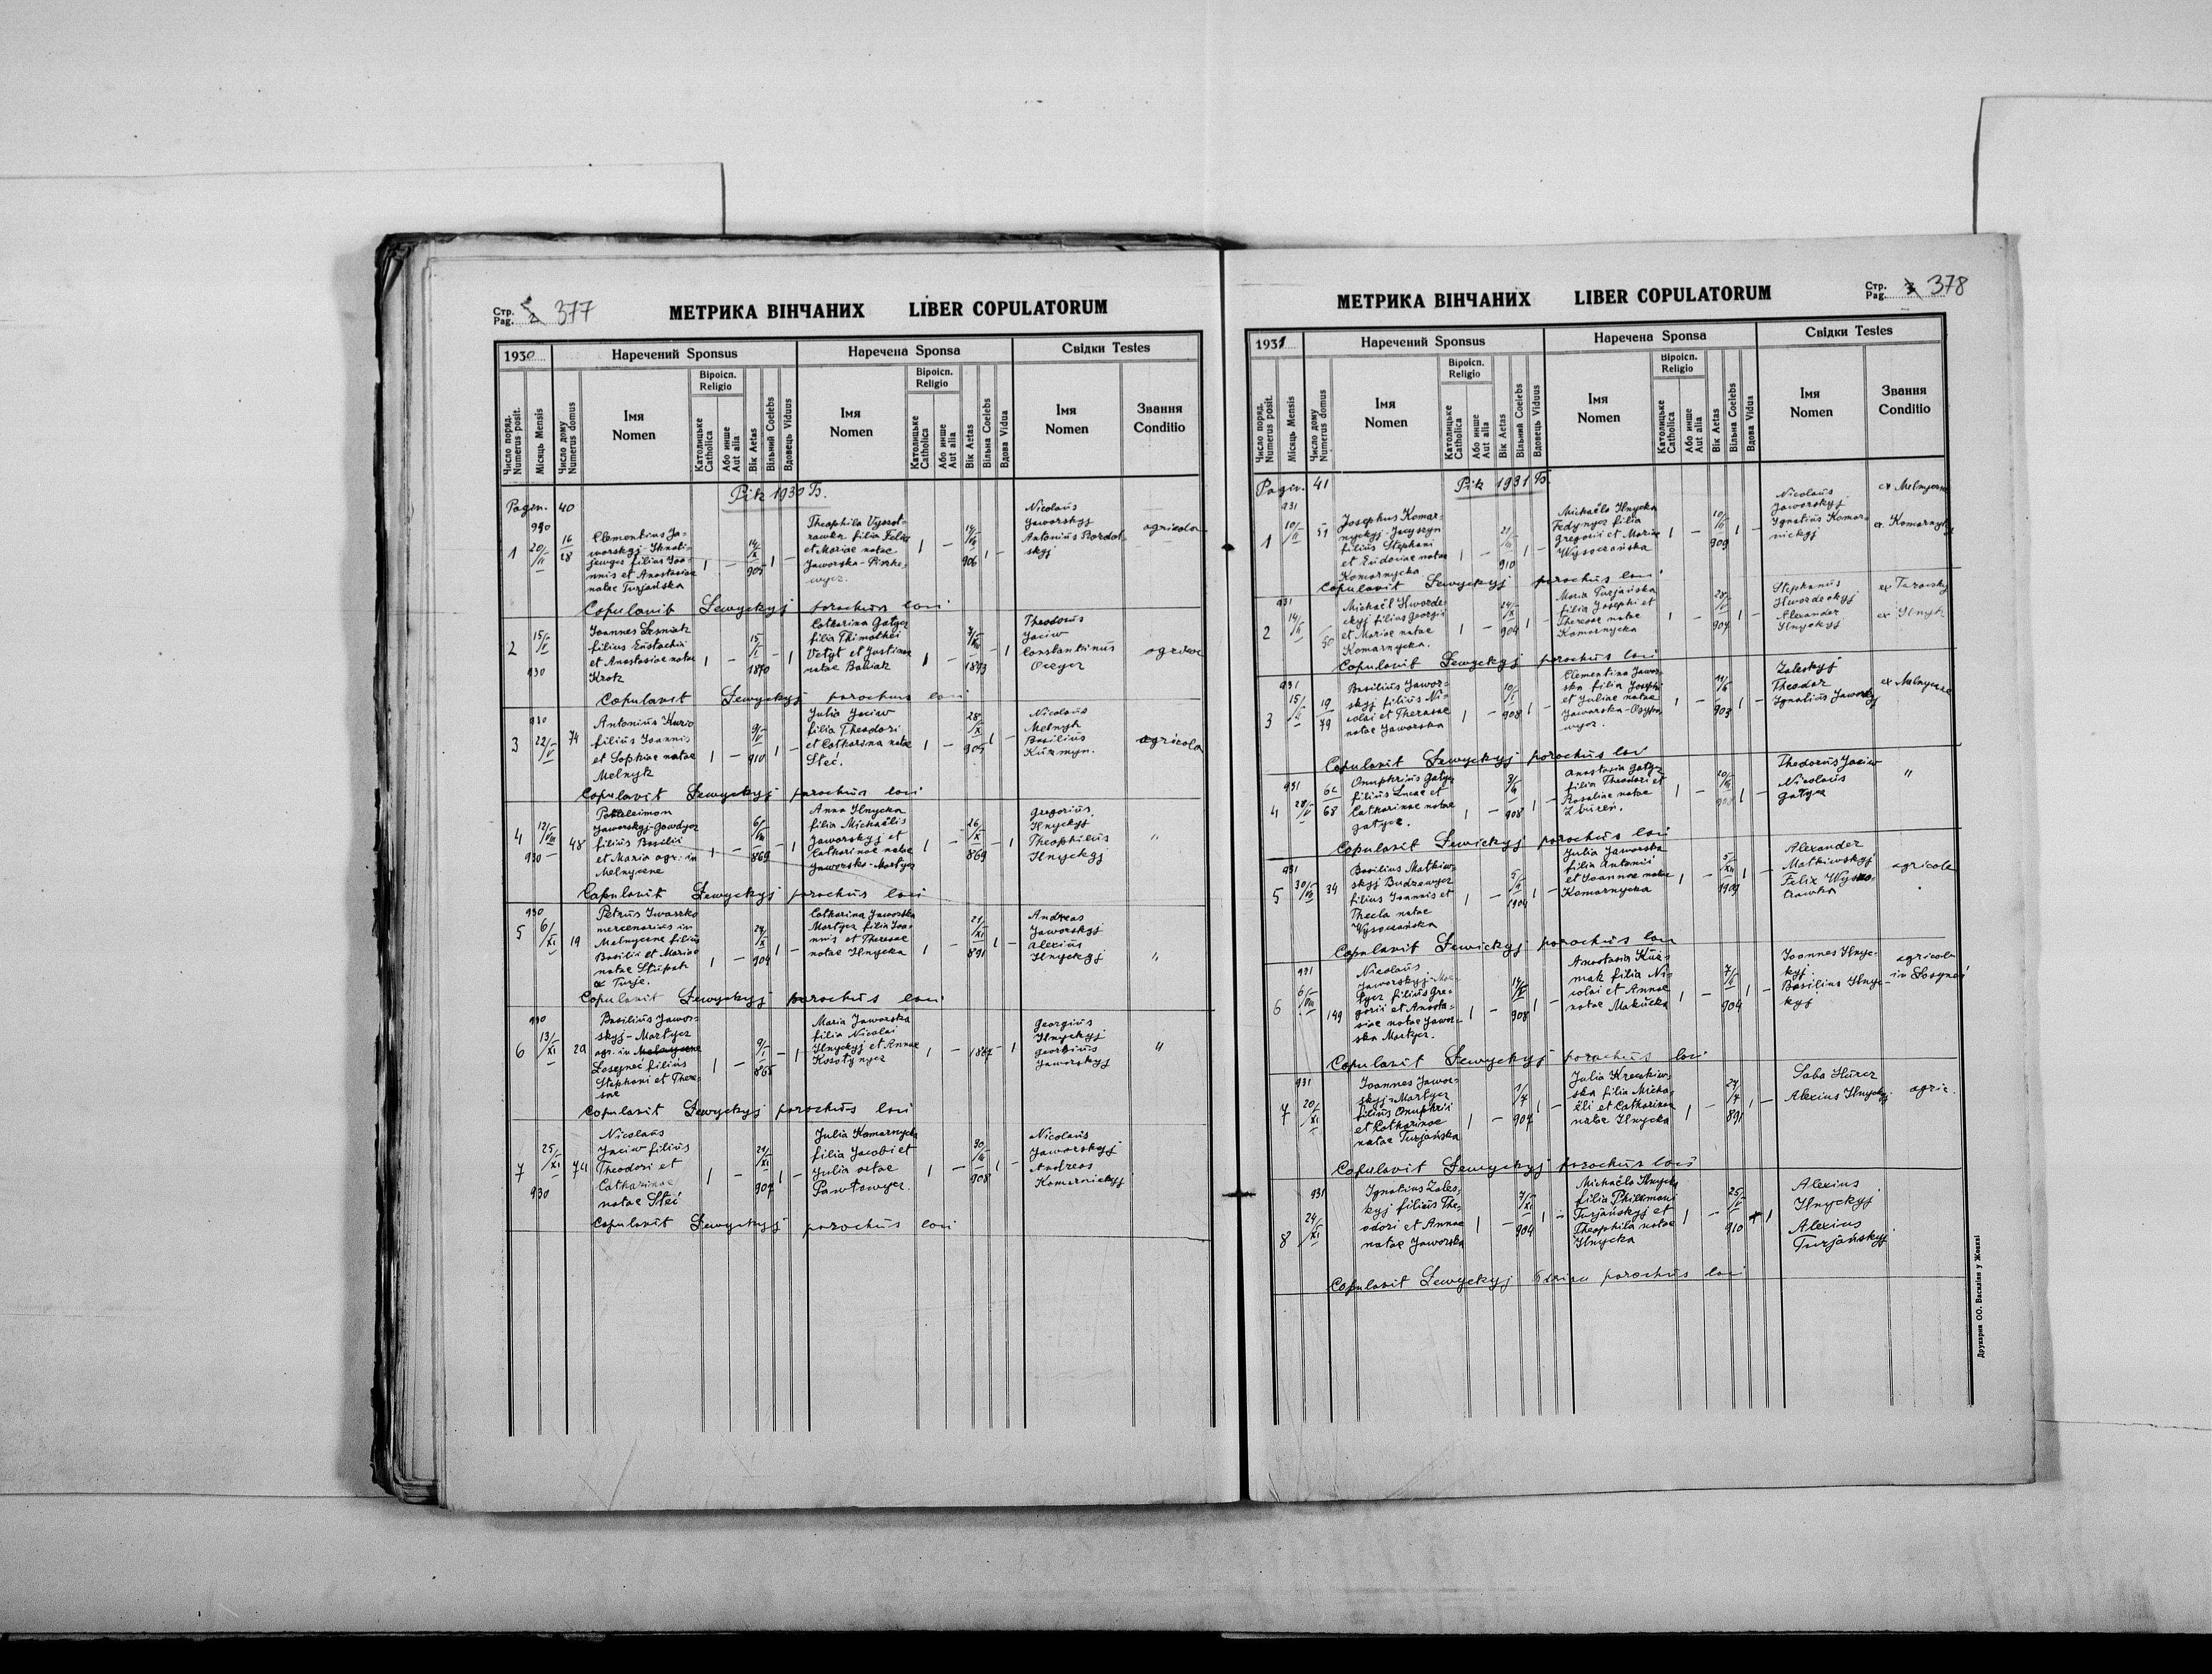 Стр. Pag. 377
МЕТРИКА ВІНЧАНИХ LIBER COPULATORUM
1930
Наречений Sponsus
Наречена Sponsa
Свідки Testes
Число поряд. Numerus posit.
Місяць Mensis
Число дому Numerus domus
Імя Nomen
Віроісп. Religio
Католицьке Catholica
Або инше Aut alia
Вік Aetas
Вільний Coelebs
Вдовець Viduus
Імя Nomen
Віроісп. Religio
Католицьке Catholica
Або инше Aut alia
Вік Aetas
Вільна Coelebs
Вдова Vidua
Імя Nomen
Звання Conditio
Pagin. 40
Рік 1930 Б.
1
930
20/II
16
28
Clementius Ja-
worskyj-Ihnati-
jewycz filius Joa-
nnis et Anastasiae
natae Turjańska
1 —
14/X
905
1 —
Theophila Vysot-
filia Felix
et Mariae natae
Jaworska-Piszke-
wycz.
1 —
906
1 —
Nicolaus
Jaworskyj
Antonius
skyj
agricola
Copulavit Lewyckyj parochus loci
2
15/V
930
Joannes Lesniak
filius Eustachii
et Anastasiae natae
Krok
1 —
15/I
1870
— 1
Catharina Gatycz
filia Thimothei
Vetyt et Justinae
natae Baniak
1 —
1873
— 1
Theodorus
Jaciw
Constantinus
agricola
Copulavit Lewyckyj parochus loci
3
930
22/V
74
Antonius
filius Joannis
et Sophiae natae
Melnyk
1 —
9/V
910
1 —
Julia Jaciw
filia Theodori
et Catharina natae
Steć.
1 —
28/X
905
1 —
Nicolaus
Melnyk
Basilius
Kuzmyn.
agricola
Copulavit Lewyckyj parochus loci
4
12/VIII
930
48
Jaworskyj-Gawdycz
filius Basilii
et Maria agr. in
Melnyczne
1 —
869
— 1
Anna Ilnycka
filia Michaëlis
Jaworskyj et
Catharinae natae
Jaworska-Martycz
1 —
26/X
869
— 1
Gregorius
Ilnyckyj
Theophilus
Ilnyckyj
"
Copulavit Lewyckyj parochus loci
5
930
6/XI
19
Petrus Iwaszko
mercenarius in
Melnyczne filius
Basilii et Mariae
natae Stupak
ex Turje.
1 —
24/X
904
1 —
Catharina Jaworska
Martycz filia Joa-
nnis et Theresae
natae Ilnycka
1 —
21/XI
891
1 —
Andreas
Jaworskyj
Alexius
Ilnyckyj
"
Copulavit Lewyckyj parochus loci
6
930
13/XI
29
Basilius Jawor-
skyj-Martycz
agr. in Melnyczne
Łosyneć filius
Stephani et There-
sae
1 —
9/I
865
— 1
Maria Jaworska
filia Nicolai
Ilnyckyj et Annae
Kosotynycz
1 —
1867
— 1
Georgius
Ilnyckyj
Georgius
Jaworskyj
"
Copulavit Lewyckyj parochus loci
7
25/XI
930
74
Nicolaus
Jaciw filius
Theodori et
Catharinae
natae Steć
1 —
907
1 —
Julia Komarnycka
filia Jacobi et
Julia
Pawłowycz.
1 —
908
1 —
Nicolaus
Jaworskyj
Andreas
Komarnickyj
Copulavit Lewyckyj parochus loci
Стр. Pag. 378
МЕТРИКА ВІНЧАНИХ LIBER COPULATORUM
1931
Наречений Sponsus
Наречена Sponsa
Свідки Testes
Число поряд. Numerus posit.
Місяць Mensis
Число дому Numerus domus
Імя Nomen
Віроісп. Religio
Католицьке Catholica
Або инше Aut alia
Вік Aetas
Вільний Coelebs
Вдовець Viduus
Імя Nomen
Віроісп. Religio
Католицьке Catholica
Або инше Aut alia
Вік Aetas
Вільна Coelebs
Вдова Vidua
Імя Nomen
Звання Conditio
Pagin. 41
Рік 1931 Б.
1
931
10/II
51
Josephus Komar-
nyckyj-Jacyszyn
filius Stephani
et Eudoxiae natae
Komarnycka
1 —
910
1 —
Michaëla Ilnycka
Fedynycz filia
Gregorii et Maria
Wysoczańska
1 —
909
1 —
Nicolaus
Jaworskyj
Ignatius Komar-
nickyj
ex Melnyczne
ex. Komarnyky
Copulavit Lewyckyj parochus loci
2
931
14/II
50
Michaël Hworde-
ckyj filius Georgii
et Mariae natae
Komarnycka.
1 —
904
1 —
Maria Turjańska
filia Josephi et
Theresae natae
Komarnycka
1 —
907
1 —
Stephanus
Hwordeckyj
Alexander
Ilnyckyj
ex Ilnyk
Copulavit Lewyckyj parochus loci
3
931
15/II
19
79
Basilius Jawor-
skyj filius Ni-
colai et Therasae
natae Jaworska
1 —
908
1 —
Clementina Jawor-
ska filia Josephi
et Juliae natae
Jaworska-Osypo-
wycz.
1 —
903
1 —
Zaleskyj
Theodor
Ignatius Jaworskyj
ex Melnyczne
Copulavit Lewyckyj parochus loci
4
931
28/V
62
68
Onuphrius Gatycz
filius Lucae et
Catharinae natae
Gatycz.
1 —
908
1 —
Anastasia Gatycz
filia Theodori et
Rosaliae natae
Zbureń.
1 —
1 —
Theodorus Jaciw
Nicolaus
Gatycz
"
Copulavit Lewickyj parochus loci
5
931
30/VII
34
Basilius Matkiw-
skyj Budzewycz
filius Joannis et
Thecla natae
Wysoczańska
1 —
1904
1 —
Julia Jaworska
filia Antonii
et Joannae natae
Komarnycka
1 —
5/XII
1909
1 —
Alexander
Matkiwskyj
Felix Wyso-
agricola
Copulavit Lewickyj parochus loci
6
931
6/VIII
149
Nicolaus
Jaworskyj-Mar-
tycz filius Gre-
gorii et Anasta-
siae natae Jawor-
ska Martycz.
1 —
908
1 —
Anastasia Kuź-
mak filia Ni-
colai et Annae
natae Makucka
1 —
904
1 —
Joannes Ilnyc-
kyj
Basilius Ilnyc-
kyj
agricola
in Łosyneć
Copulavit Lewyckyj parochus loci
7
931
20/XI
Joannes Jawor-
skyj-Martycz
filius Onuphrii
et Catharinae
natae Turjańska
1 —
1/7
907
1 —
Julia Kreckiw-
ska filia Micha-
ëli et Catharinae
natae Ilnycka
1 —
24/7
891
1 —
Saba Hurcz
Alexius Ilnyckyj
agric.
Copulavit Lewyckyj parochus loci
8
931
24/XI
Ignatius Zales-
kyj filius The-
odori et Annae
natae Jaworska
1 —
7/XI
904
1 —
Michaëla Ilnycka
filia Philemoni
Turjańskyj et
Theophila natae
Ilnycka
1 —
910
1
Alexius
Ilnyckyj
Alexius
Turjańskyj
Copulavit Lewyckyj parochus loci
Друкарня ОО. Василіян у Жовкві